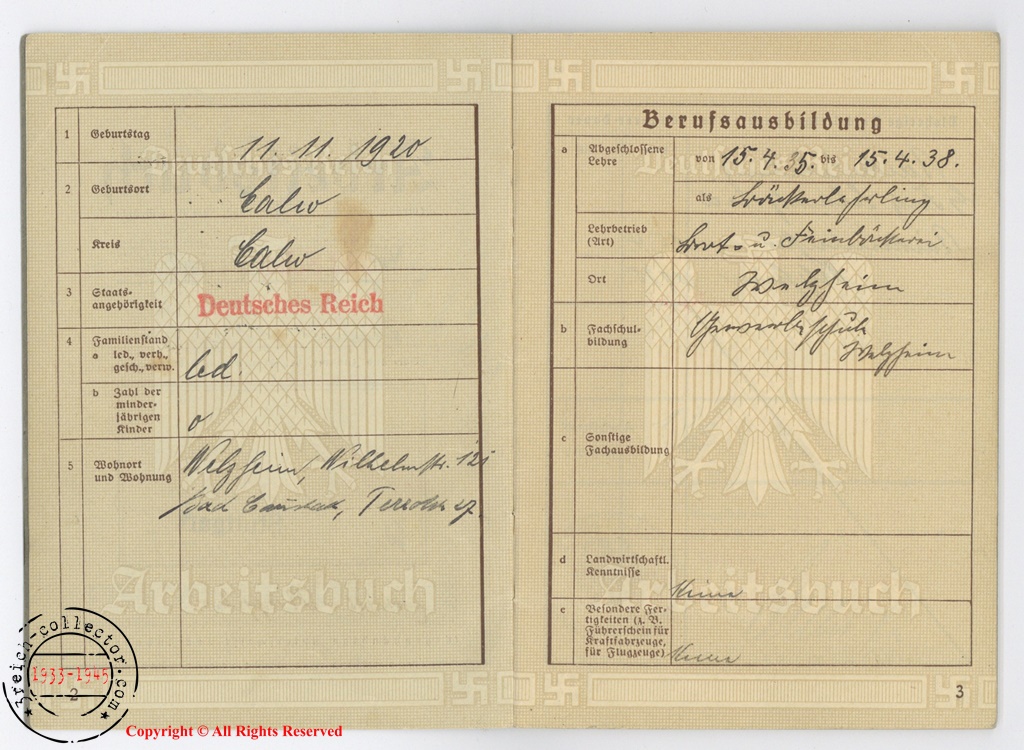 1 Geburtstag 11. 11. 1920
2 Geburtsort Calw
Kreis Calw
3 Staats-
angehörigkeit Deutsches Reich
4 Familienstand
a led., verh.,
gesch., verw. led.
b Zahl der
minder-
jährigen
Kinder 0
5 Wohnort
und Wohnung Welzheim, Wilhelmstr.
Bad Cannstatt,
Arbeitsbuch
2
Berufsausbildung
a Abgeschlossene
Lehre von 15.4.35. bis 15.4.38.
als Bäckerlehrling
Lehrbetrieb
(Art) Brot- u. Feinbäckerei
Ort Welzheim
b Fachschul-
bildung Gewerbeschule
Welzheim
c Sonstige
Fachausbildung
d Landwirtschaftl.
Kenntnisse Keine
e Besondere Fer-
tigkeiten (z. B.
Führerschein für
Kraftfahrzeuge,
für Flugzeuge) Keine
Arbeitsbuch
3
3reich-collector.com
1933-1945
Copyright © All Rights Reserved